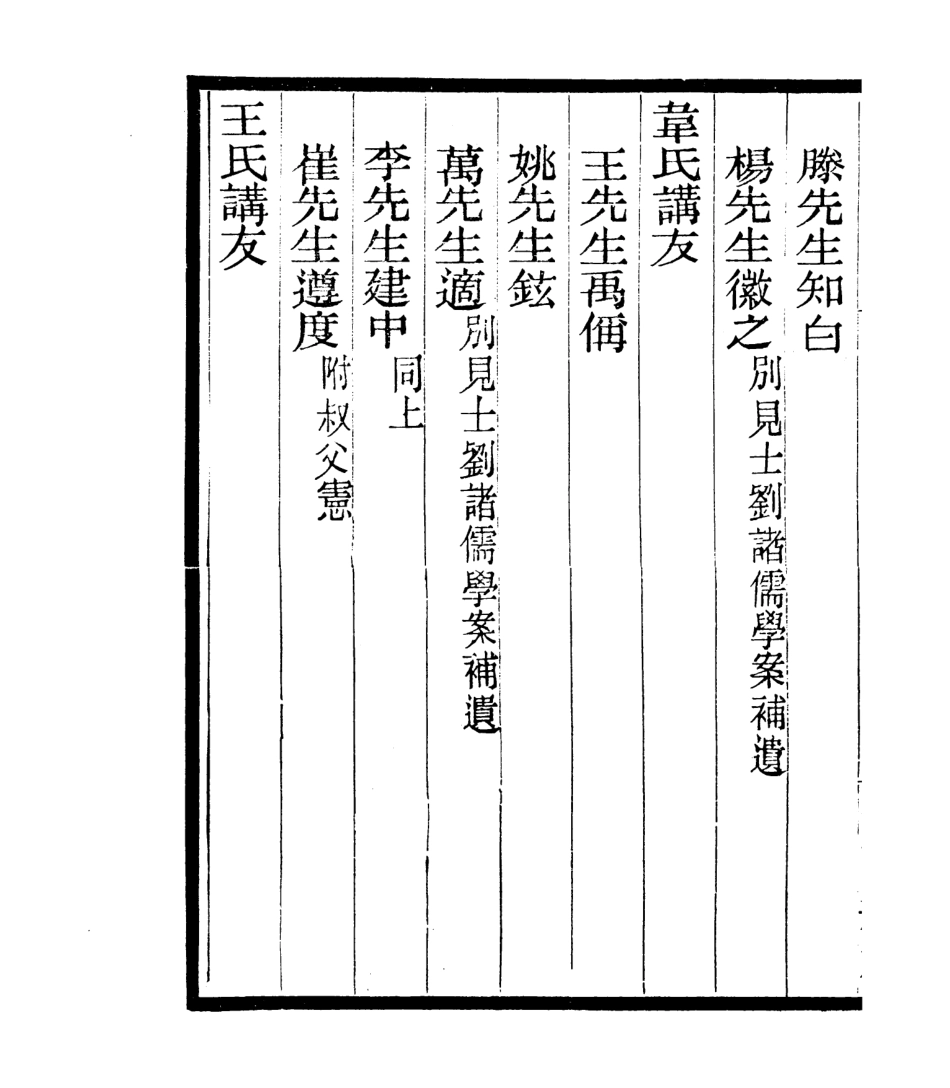 滕先生知白
楊先生徽之別見士劉諸儒學案補遺
韋氏講友
王先生禹偁
姚先生鉉
萬先生適別見士劉諸儒學案補遺
李先生建中同上
崔先生遵度附叔父憲
王氏講友